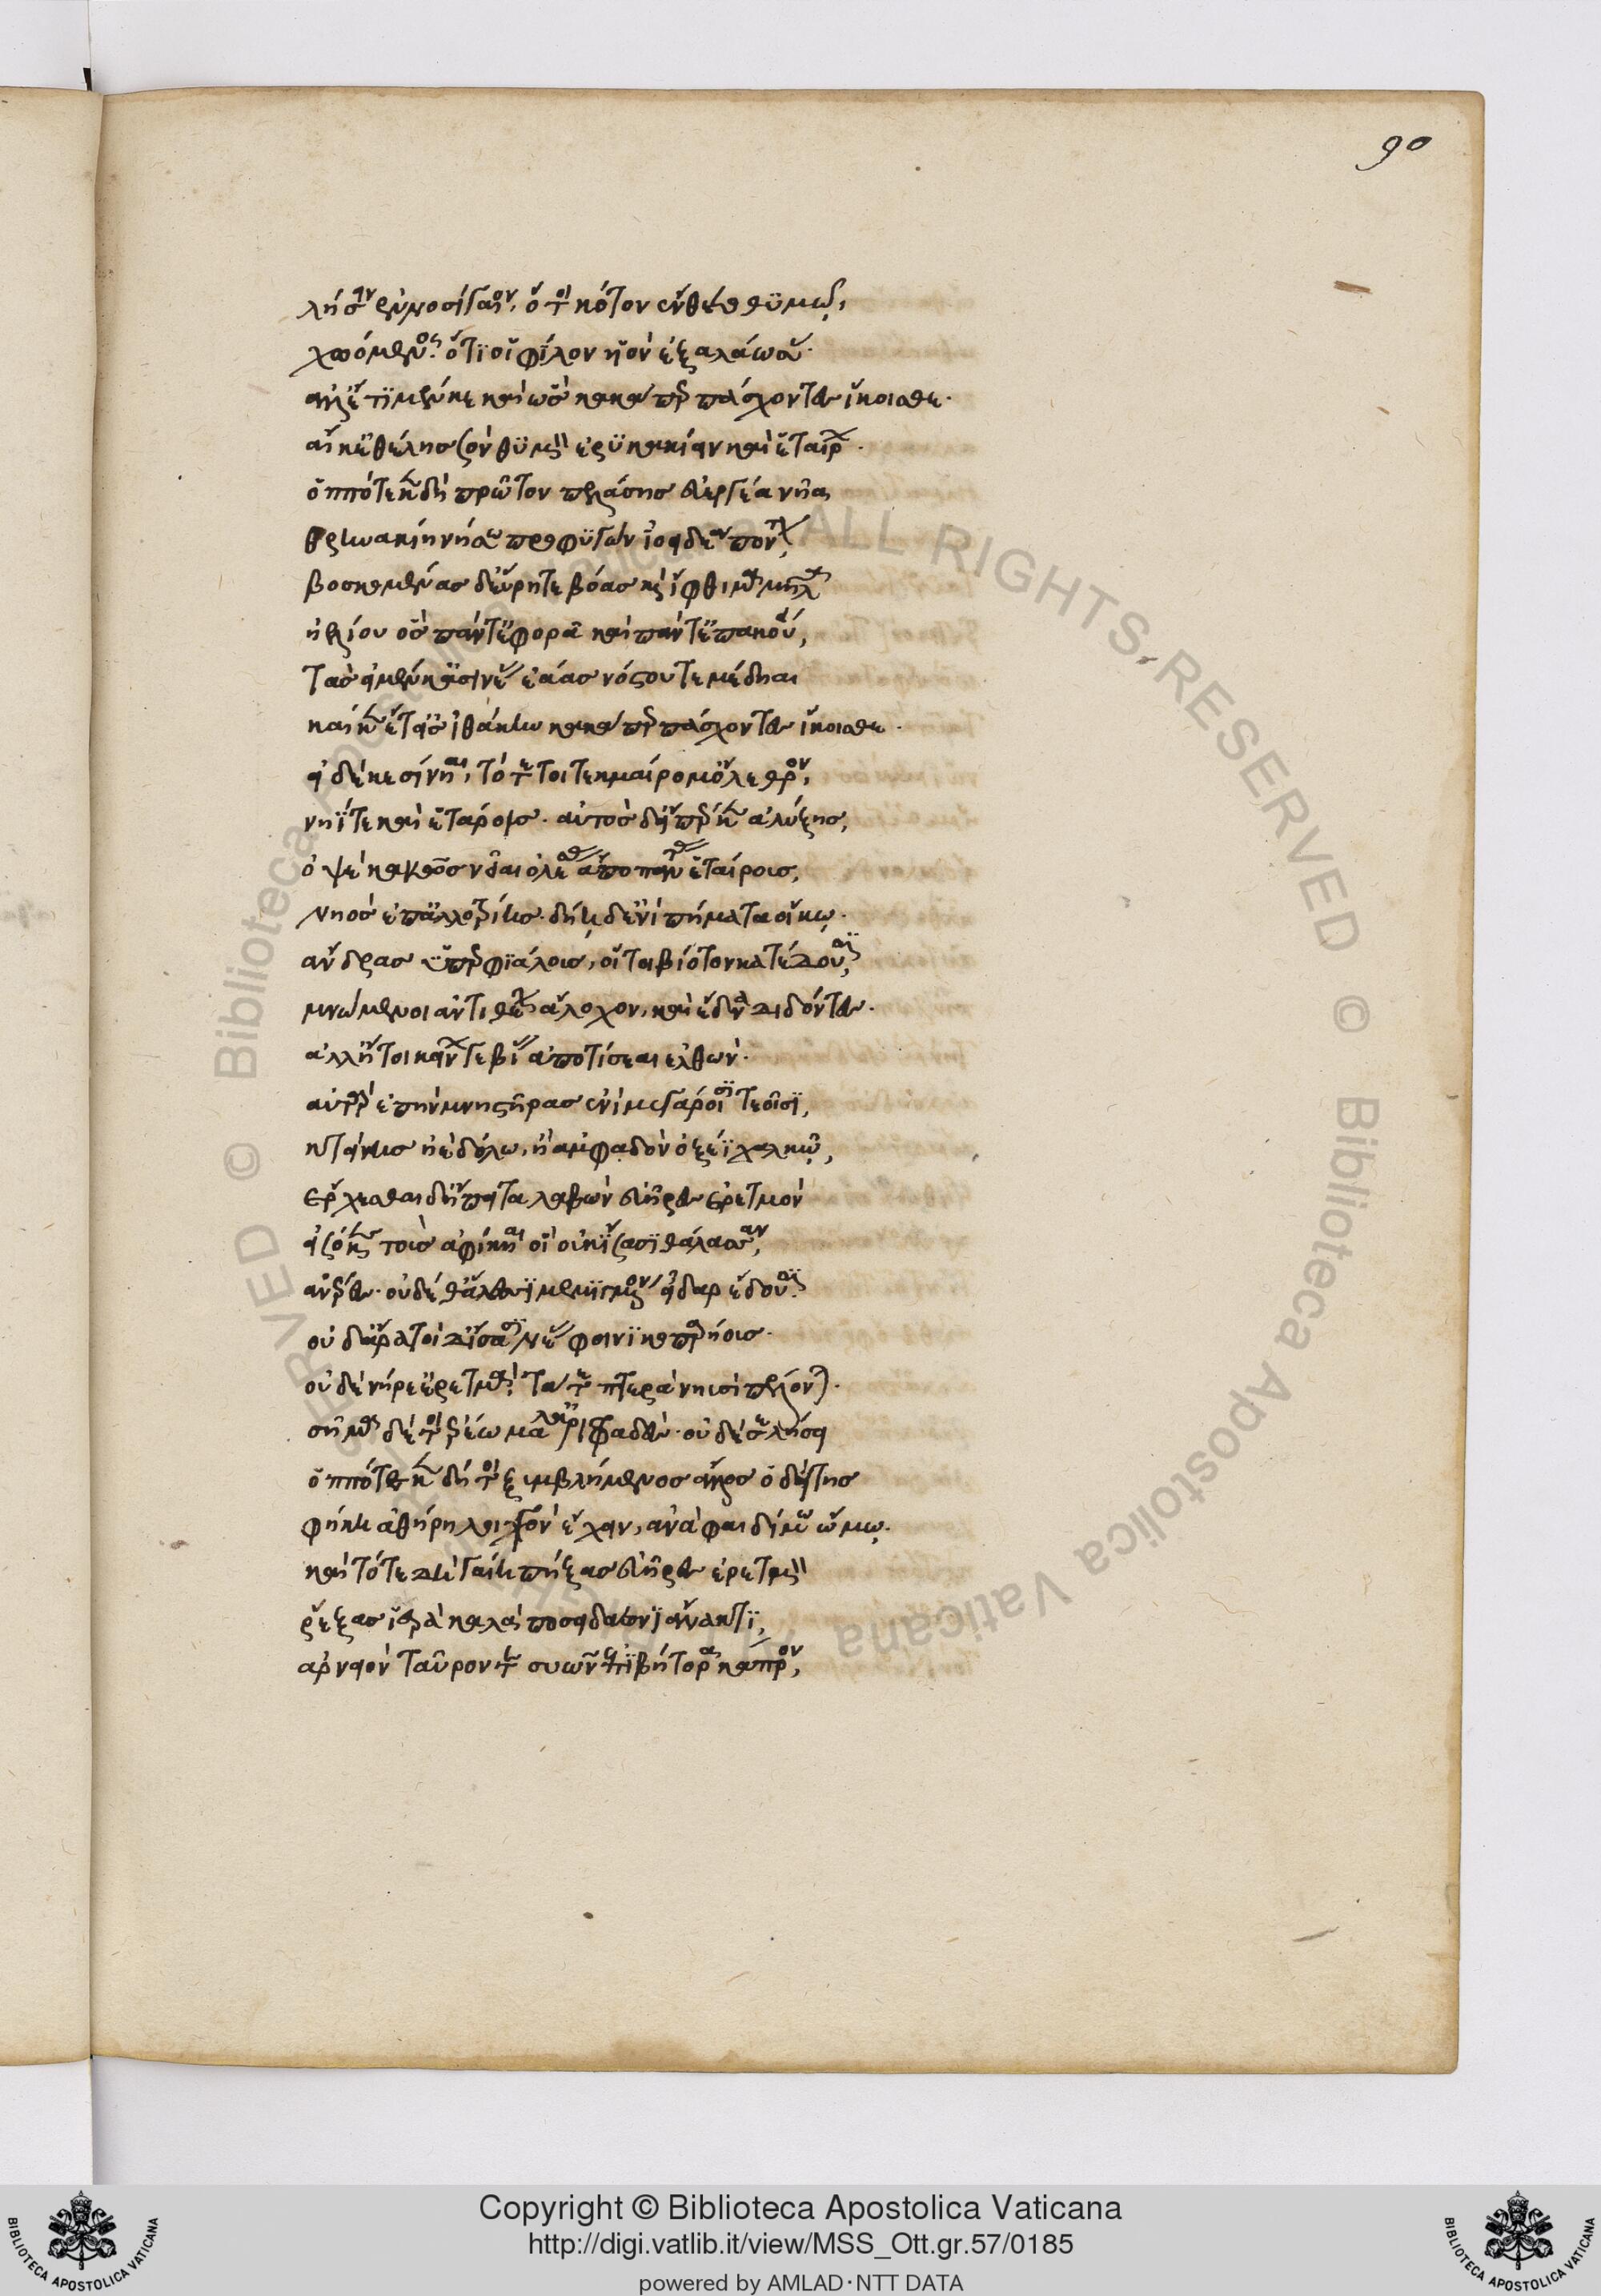 90
λήσειν ἐννοσίγαιον, ὅ τοι κότον ἔνθετο θυμῷ,
χωόμενος ὅτι οἱ φίλον υἱὸν ἐξαλάωσε·
ἀλλ' ἔτι μέν κε καὶ ὣς κακά περ πάσχοντες ἵκοισθε·
αἴ κ' ἐθέλῃς σὸν θυμὸν ἐρυκακέειν καὶ ἑταίρων·
ὁππότε κεν δὴ πρῶτον πελάσῃς εὐεργέα νῆα
θρινακίῃ νήσῳ προφυγὼν ἰοειδέα πόντον,
βοσκομένας δ' εὕρητε βόας καὶ ἴφια μῆλα
ἠελίου ὃς πάντ' ἐφορᾷ καὶ πάντ' ἐπακούει,
τὰς εἰ μέν κ' ἀσινέας ἐάας νόστου τε μέδηαι
καί κεν ἔτ' εἰς ἰθάκην κακά περ πάσχοντες ἵκοισθε·
εἰ δέ κε σίνηαι, τότε τοι τεκμαίρομ' ὄλεθρον,
νηΐ τε καὶ ἑτάροις· αὐτὸς δ' εἴπερ κεν ἀλύξῃς,
ὀψὲ κακῶς νεῖαι ὀλέσας ἄπο πάντας ἑταίρους,
νηὸς ἐπ' ἀλλοτρίης· δήεις δ' ἐνὶ πήματα οἴκῳ·
ἄνδρας ὑπερφιάλους, οἵ τοι βίοτον κατέδουσι,
μνώμενοι ἀντιθέην ἄλοχον, καὶ ἕδνα διδόντες·
ἀλλ' ἤτοι κείνων γε βίας ἀποτίσεαι ἐλθών·
αὐτὰρ ἐπὴν μνηστῆρας ἐνὶ μεγάροισι τεοῖσι,
κτείνῃς ἠὲ δόλῳ, ἢ ἀμφαδὸν ὀξέϊ χαλκῷ,
ἔρχεσθαι δὴ ἔπειτα λαβὼν εὐῆρες ἐρετμὸν
εἰς ὅ κε τοὺς ἀφίκηαι οἳ οὐκ ἴσασι θάλασσαν,
ἀνέρες· οὐδέ θ' ἅλεσσι μεμιγμένον εἶδαρ ἔδουσι·
οὐδ' ἄρα τοὶ ἴσασι νέας φοινικοπαρῄους·
οὐδ' εὐήρε' ἐρετμὰ, τά τε πτερὰ νηυσὶ πέλονται·
σῆμα δέ τοι ἐρέω μάλ' ἀριφραδές· οὐδέ σε λήσει
ὁππότε κεν δή τοι ξυμβλήμενος ἄλλος ὁδίτης
φήῃ ἀθηρηλοιγὸν ἔχειν, ἀνὰ φαιδίμῳ ὤμῳ·
καὶ τότε δὴ γαίῃ πήξας εὐῆρες ἐρετμὸν
ῥέξας ἱερὰ καλὰ ποσειδάωνι ἄνακτι,
ἀρνειὸν ταῦρόν τε συῶν τ' ἐπιβήτορα κάπρον,
Copyright © Biblioteca Apostolica Vaticana
http://digi.vatlib.it/view/MSS_Ott.gr.57/0185
powered by AMLAD·NTT DATA